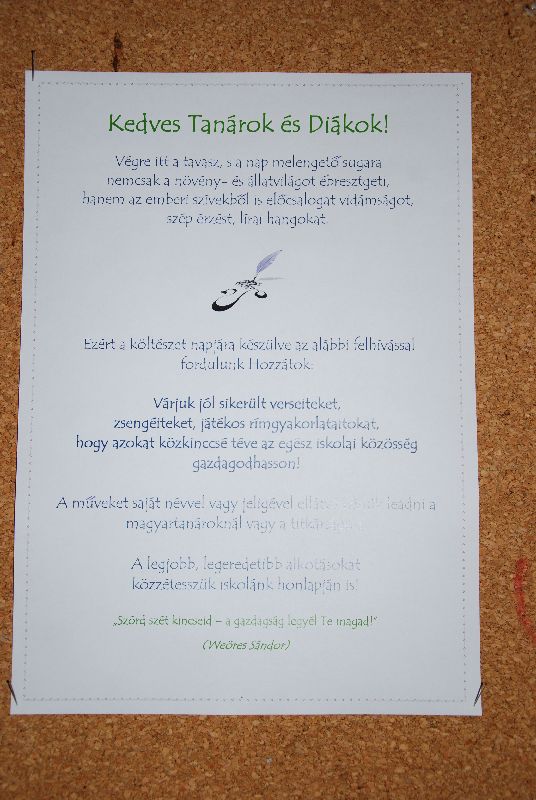 Kedves Tanárok és Diákok!
Végre itt a tavasz, s a nap melengető sugara
nemcsak a növény- és állatvilágot ébresztgeti,
hanem az emberi szívekből is előcsalogat vidámságot,
szép érzést, lírai hangokat.
Ezért a költészet napjára készülve az alábbi felhívással
fordulunk Hozzátok:
Várjuk jól sikerült verseiteket,
zsengéiteket, játékos rímgyakorlataitokat,
hogy azokat közkinccsé téve az egész iskolai közösség
gazdagodhasson!
A műveket saját névvel vagy jeligével ellátva leadni a
magyartanároknál vagy a titkárságon
A legjobb, legeredetibb alkotásokat
közzétesszük iskolánk honlapján is!
„Szórd szét kincseid – a gazdagság legyél Te magad!"
(Weöres Sándor)